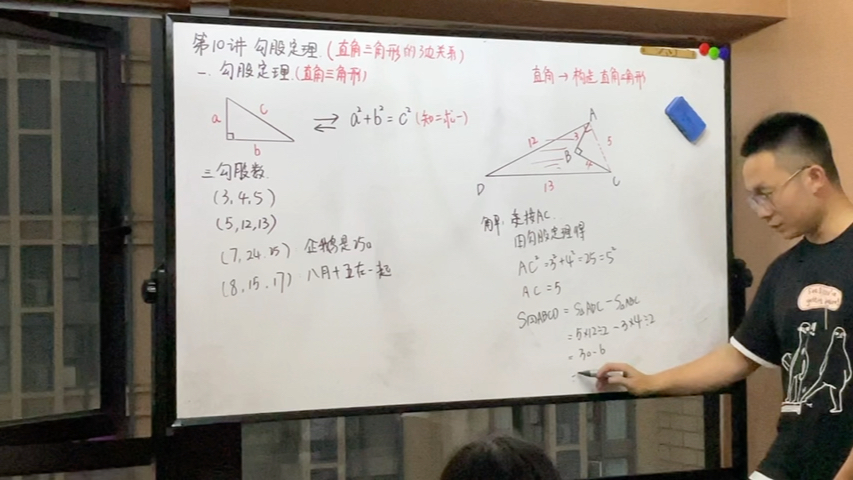 第10讲 勾股定理.(直角三角形的3边关系)
一.勾股定理(直角三角形)
a
c
b
⇌ a²+b²=c² (知二求一)
三勾股数.
(3,4,5)
(5,12,13)
(7,24.25) 企鹅是250
(8,15,17) 八月十五在一起
直角→构造直角三角形
A
12
3
5
B
4
D
13
C
解:连接AC.
由勾股定理得
AC²=3²+4²=25=5²
AC=5
S四ABCD=S△ADC-S△ABC
=5×12÷2-3×4÷2
=30-6
=